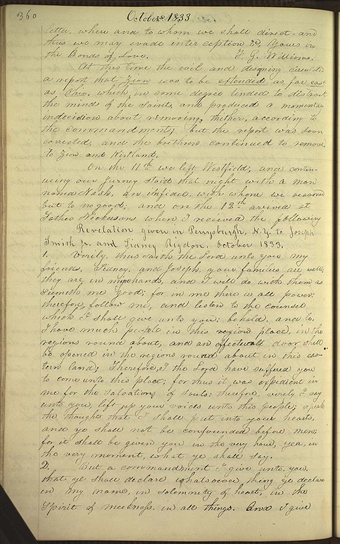 360 October 1833.
letter, where and to whom we shall direct and
thus we may evade interception &c. Yours in
the Bonds of Love, F. G. Williams.
At this time the evil and designing circulated
a report that Zion was to be extended as far east
as Ohio, which in some degree tended to distract
the minds of the saints, and produced a momentary
indecision about removing thither, according to
the commandments; but the report was soon
corrected, and the brethren continued to remove
to Zion and Kirtland.
On the 11th we left Westfield, and continuing
our journey staid that night with a man
named Nash, an infidel, with whom we reasoned
but to no good, and on the 12th arrived at
Father Nickersons where I received the following
Revelation given in Perrysburgh, N.Y. to Joseph
Smith Jr. and Sidney Rigdon, October 1833.
1. Verily, thus saith the Lord unto you, my
friends, Sidney, and Joseph, your families are well;
they are in my hands, and I will do with them as
seemeth me good; for in me there is all power:
therefore, follow me, and listen to the counsel
which I shall give unto you; behold, and lo,
I have much people in this place, in the
regions round about, and an effectual door shall
be opened in the regions round about in this eastern
land, Therefore, I the Lord have suffered you
to come unto this place; for thus it was expedient in
me for the salvation of souls: therefore verily I say
unto you, lift up your voices unto this people, speak
the thoughts that I shall put into your hearts,
and ye shall not be confounded before men;
for it shall be given you in the very hour, yea, in
the very moment, what ye shall say.
2. But a commandment I give unto you,
that ye shall declare whatsoever thing ye declare
in my name, in solemnity of heart, in the
spirit of meekness, in all things. And I give